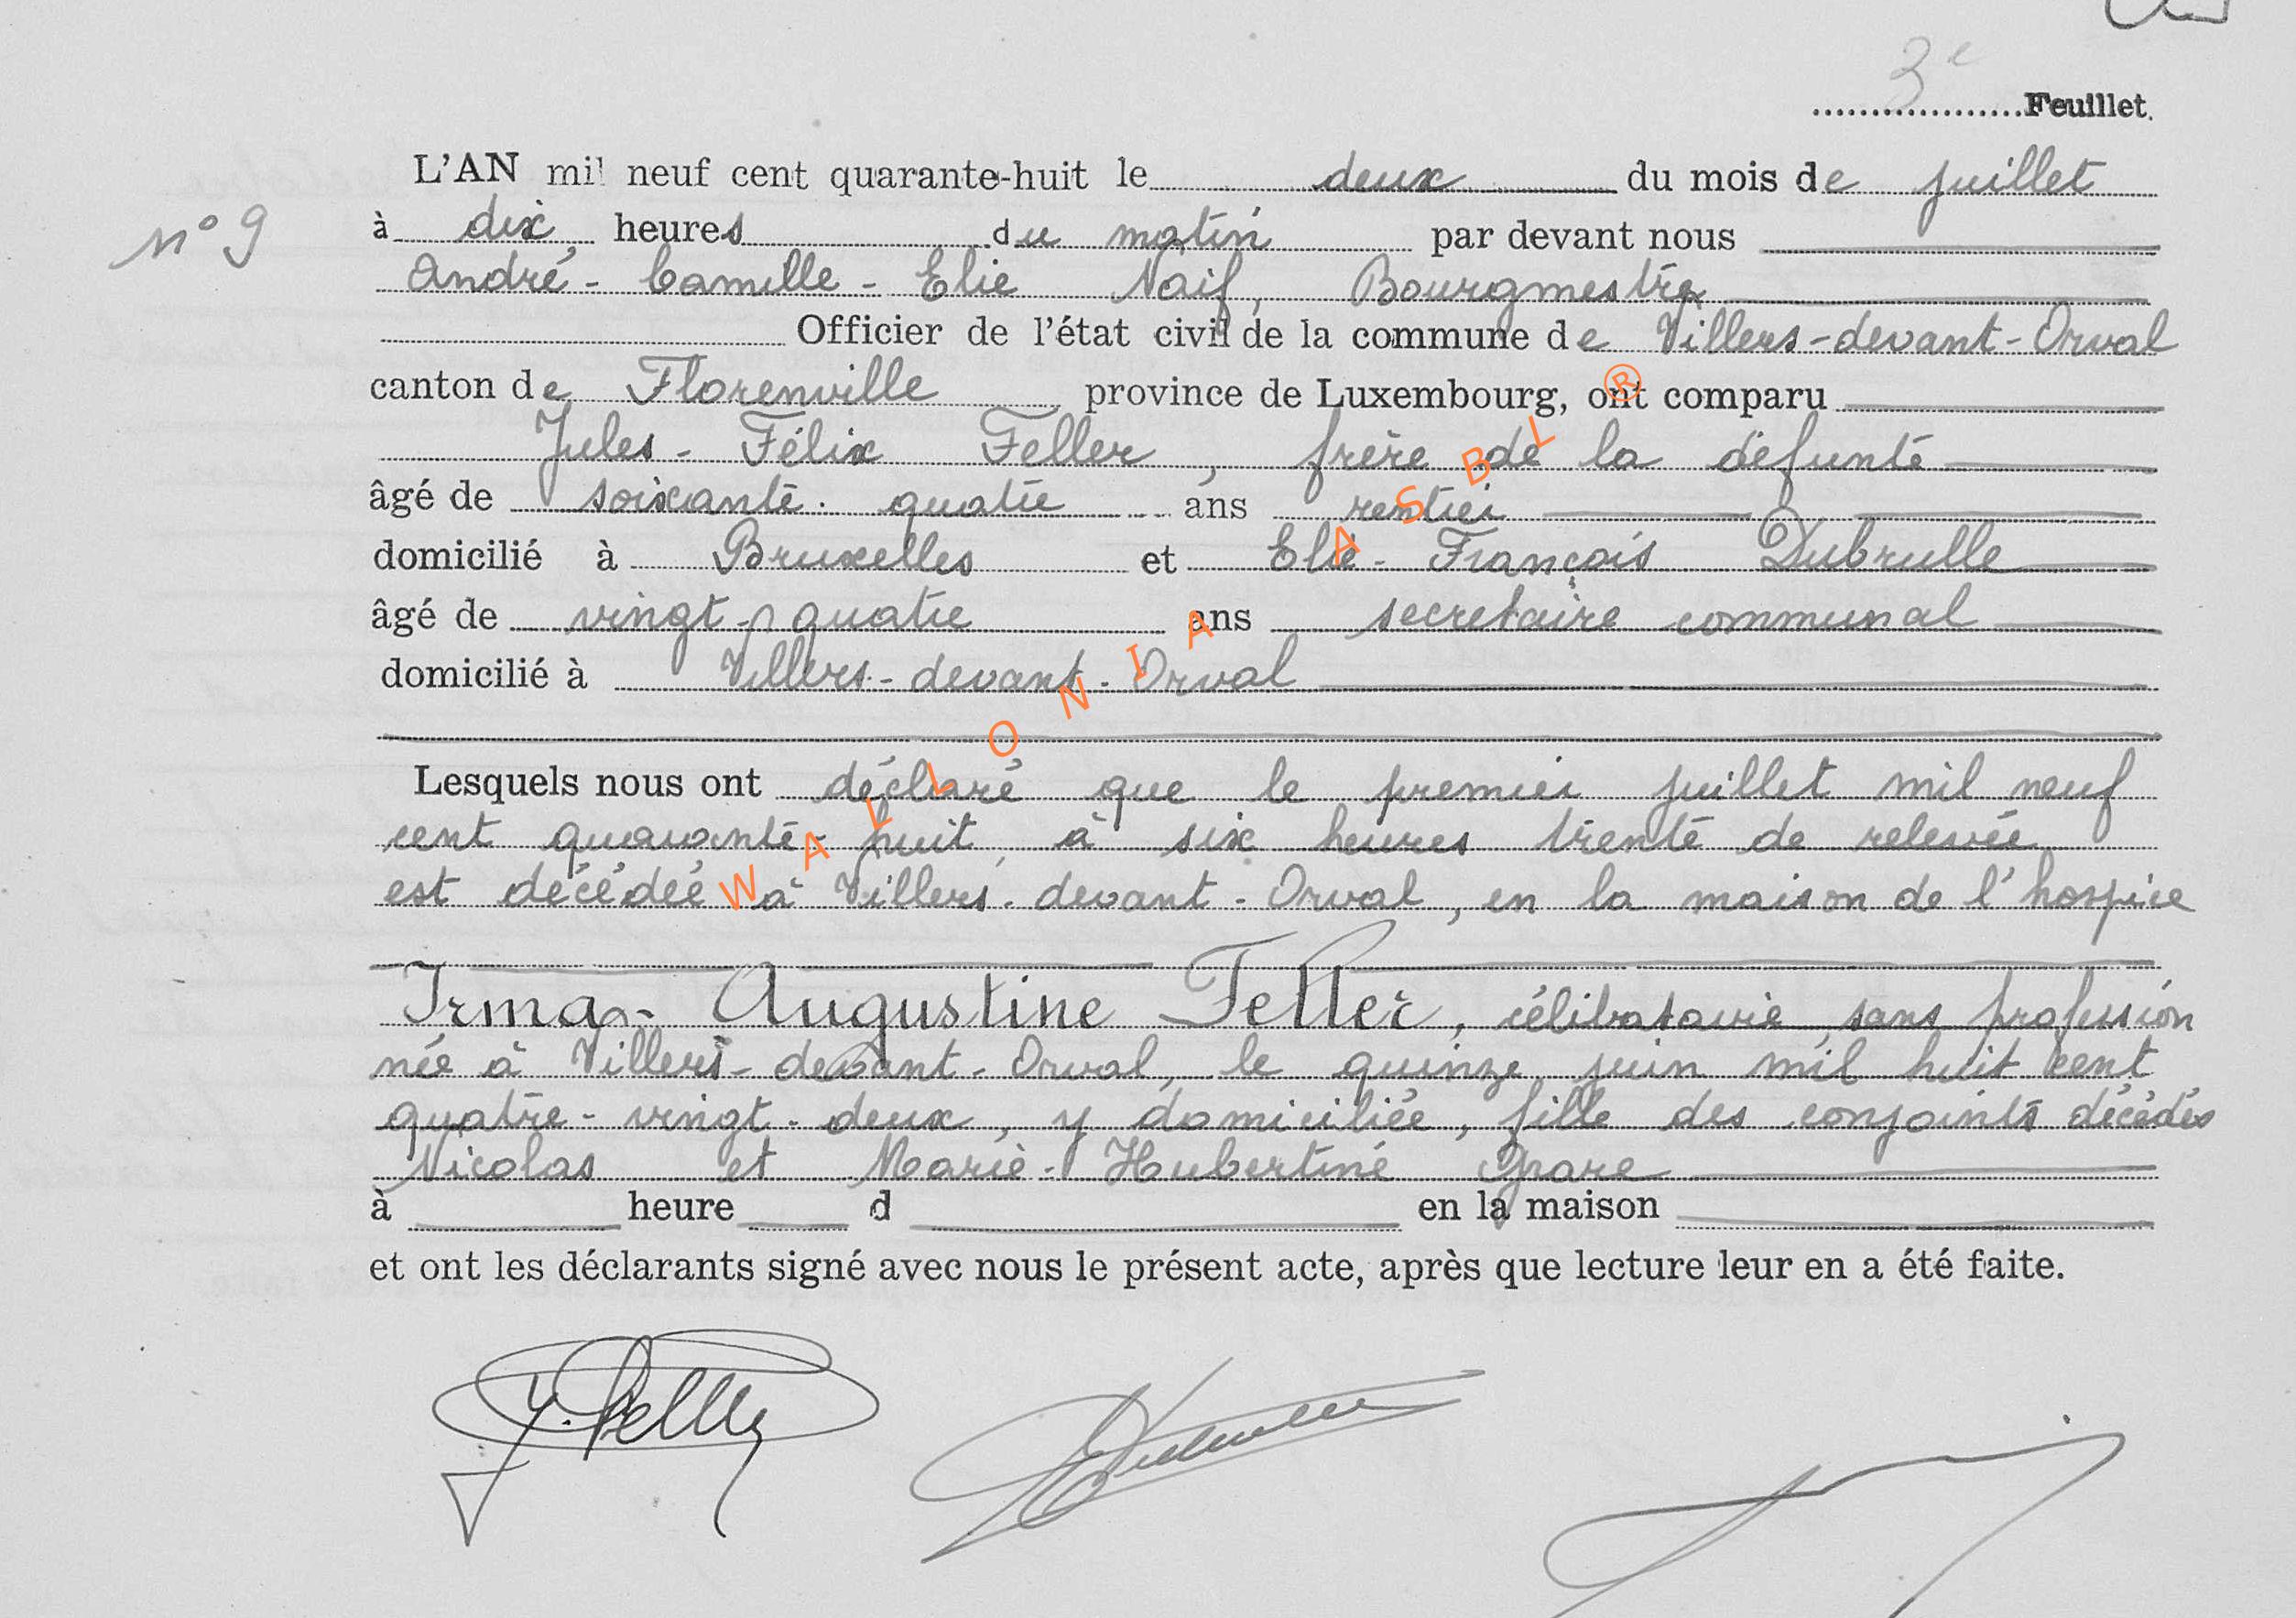 3e Feuillet.
L'AN mil neuf cent quarante-huit le deux du mois de juillet
n° 9
à dix heures du matin par devant nous
André-Camille-Elie Naif, Bourgmestre
Officier de l'état civil de la commune de Villers-devant-Orval
canton de Florenville province de Luxembourg, ont comparu
Jules-Félix Feller, frère de la défunte
âgé de soixante-quatre ans rentier
domicilié à Bruxelles et Elie-François Dubrulle
âgé de vingt-quatre ans secrétaire communal
domicilié à Villers-devant-Orval
Lesquels nous ont déclaré que le premier juillet mil neuf
cent quarante-huit, à six heures trente de relevée
est décédée à Villers-devant-Orval, en la maison de l'hospice
Irma-Augustine Feller, célibataire, sans profession
née à Villers-devant-Orval, le quinze juin mil huit cent
quatre-vingt-deux, y domiciliée, fille des conjoints décédés
Nicolas et Marie-Hubertine Grare
à heure d en la maison
et ont les déclarants signé avec nous le présent acte, après que lecture leur en a été faite.
J. Feller
WALLONIA ASBL ®